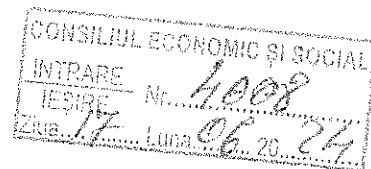 CONSILIUL ECONOMIC ȘI SOCIAL
INTRARE
IEȘIRE Nr. 4008
Ziua 17 Luna 06 20 24